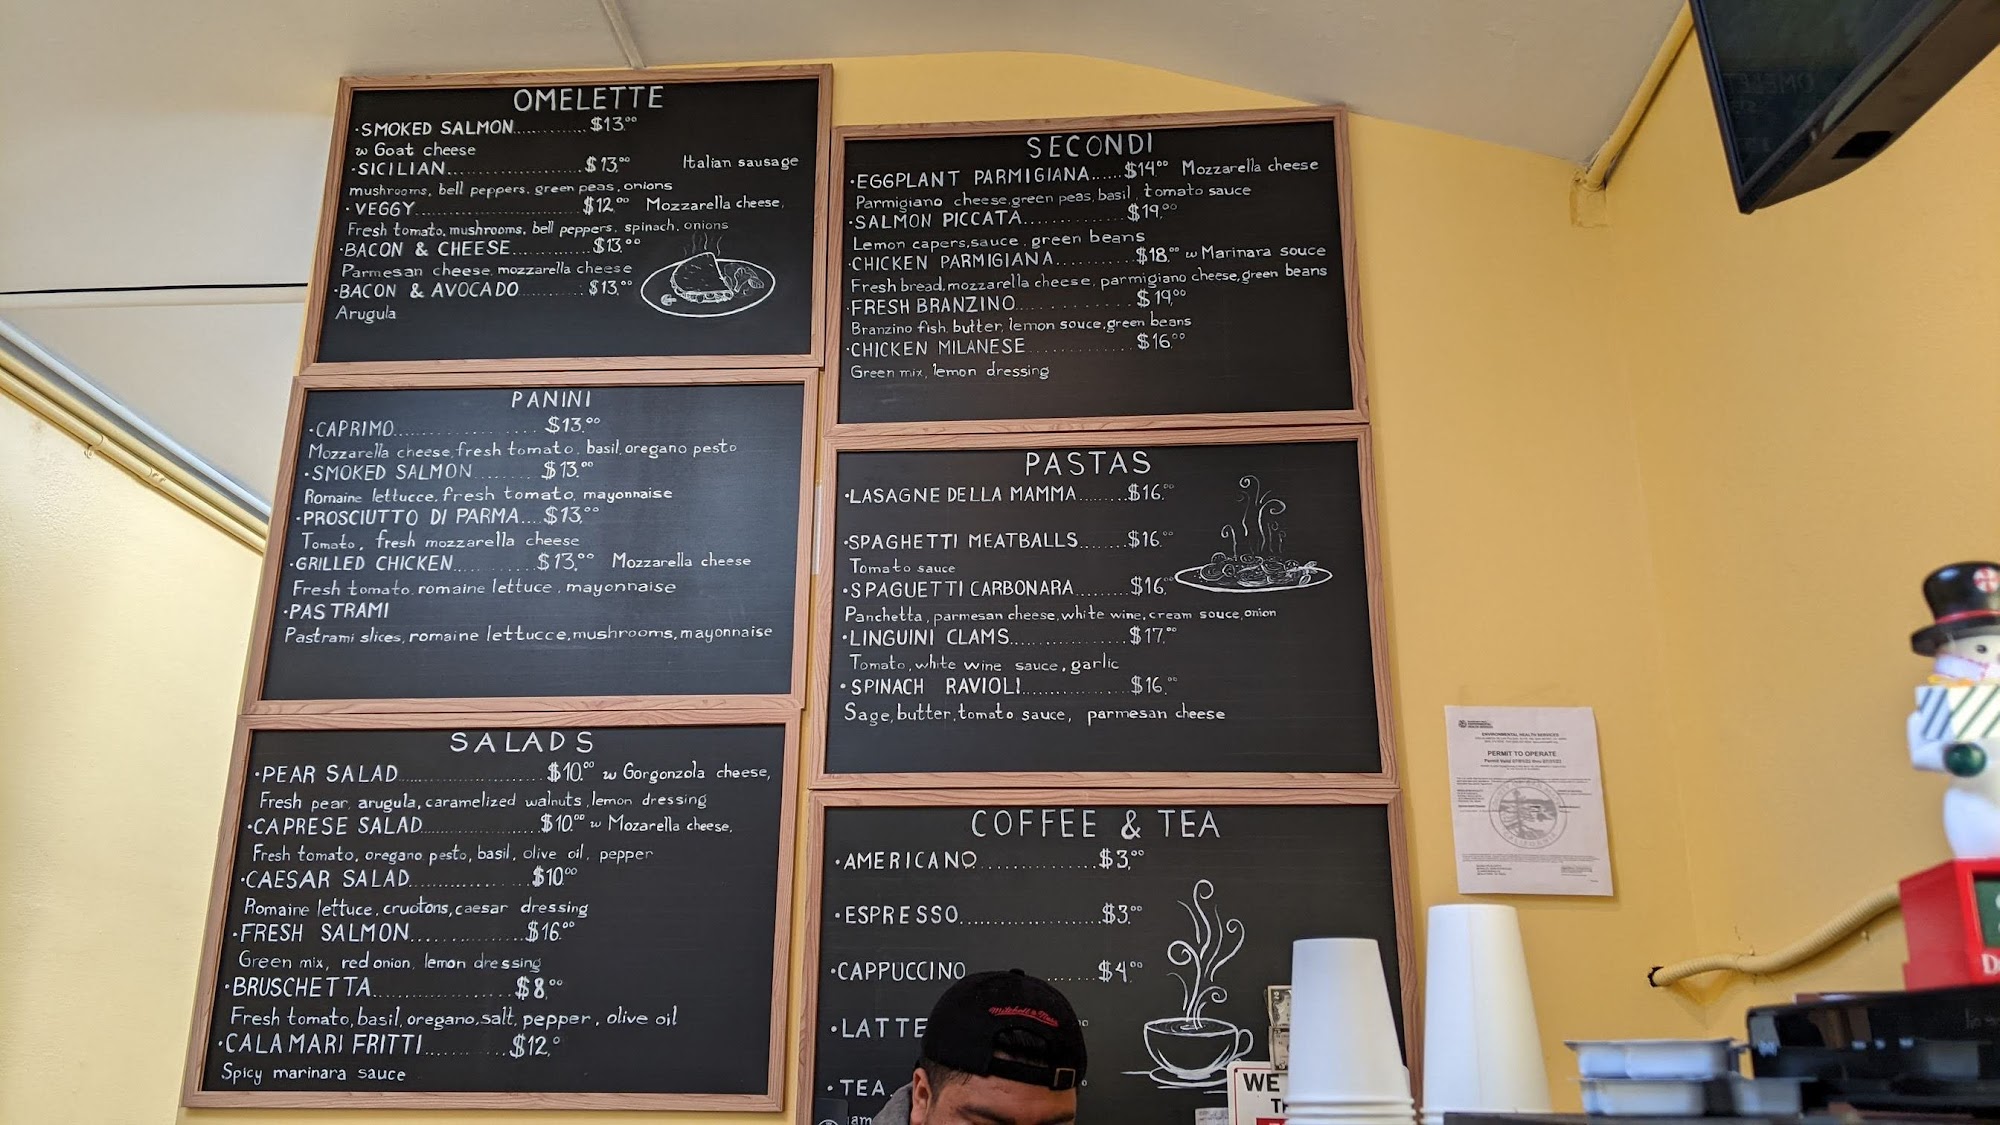 OMELETTE
·SMOKED SALMON............$13.00
w Goat cheese
·SICILIAN..................$13.00 Italian sausage
mushrooms, bell peppers, green peas, onions
·VEGGY.......................$12.00 Mozzarella cheese,
Fresh tomato, mushrooms, bell peppers, spinach, onions
·BACON & CHEESE.............$13.00
Parmesan cheese, mozzarella cheese
·BACON & AVOCADO..........$13.00
Arugula
PANINI
·CAPRIMO...................$13.00
Mozzarella cheese, fresh tomato, basil, oregano pesto
·SMOKED SALMON.........$13.00
Romaine lettucce, fresh tomato, mayonnaise
·PROSCIUTTO DI PARMA....$13.00
Tomato, fresh mozzarella cheese
·GRILLED CHICKEN...........$13.00 Mozzarella cheese
Fresh tomato, romaine lettuce, mayonnaise
·PASTRAMI
Pastrami slices, romaine lettucce, mushrooms, mayonnaise
SALADS
·PEAR SALAD...................$10.00 w Gorgonzola cheese,
Fresh pear, arugula, caramelized walnuts, lemon dressing
·CAPRESE SALAD...............$10.00 w Mozarella cheese,
Fresh tomato, oregano pesto, basil, olive oil, pepper
·CAESAR SALAD...............$10.00
Romaine lettuce, cruotons, caesar dressing
·FRESH SALMON..............$16.00
Green mix, red onion, lemon dressing
·BRUSCHETTA.................$8.00
Fresh tomato, basil, oregano, salt, pepper, olive oil
·CALAMARI FRITTI..........$12.0
Spicy marinara sauce
SECONDI
·EGGPLANT PARMIGIANA......$14.00 Mozzarella cheese
Parmigiano cheese, green peas, basil, tomato sauce
·SALMON PICCATA.............$19.00
Lemon capers, sauce, green beans
·CHICKEN PARMIGIANA...........$18.00 w Marinara souce
Fresh bread, mozzarella cheese, parmigiano cheese, green beans
·FRESH BRANZINO..............$19.00
Branzino fish, butter, lemon souce, green beans
·CHICKEN MILANESE.............$16.00
Green mix, lemon dressing
PASTAS
·LASAGNE DELLA MAMMA........$16.00
·SPAGHETTI MEATBALLS........$16.00
Tomato sauce
·SPAGUETTI CARBONARA.........$16.00
Panchetta, parmesan cheese, white wine, cream souce, onion
·LINGUINI CLAMS................$17.00
Tomato, white wine sauce, garlic
·SPINACH RAVIOLI...............$16.00
Sage, butter, tomato sauce, parmesan cheese
COFFEE & TEA
·AMERICANO...............$3.00
·ESPRESSO..................$3.00
·CAPPUCCINO ........$4.00
·LATTE
·TEA.
Mitchell & Ness
WE
ENVIRONMENTAL HEALTH SERVICES
PERMIT TO OPERATE